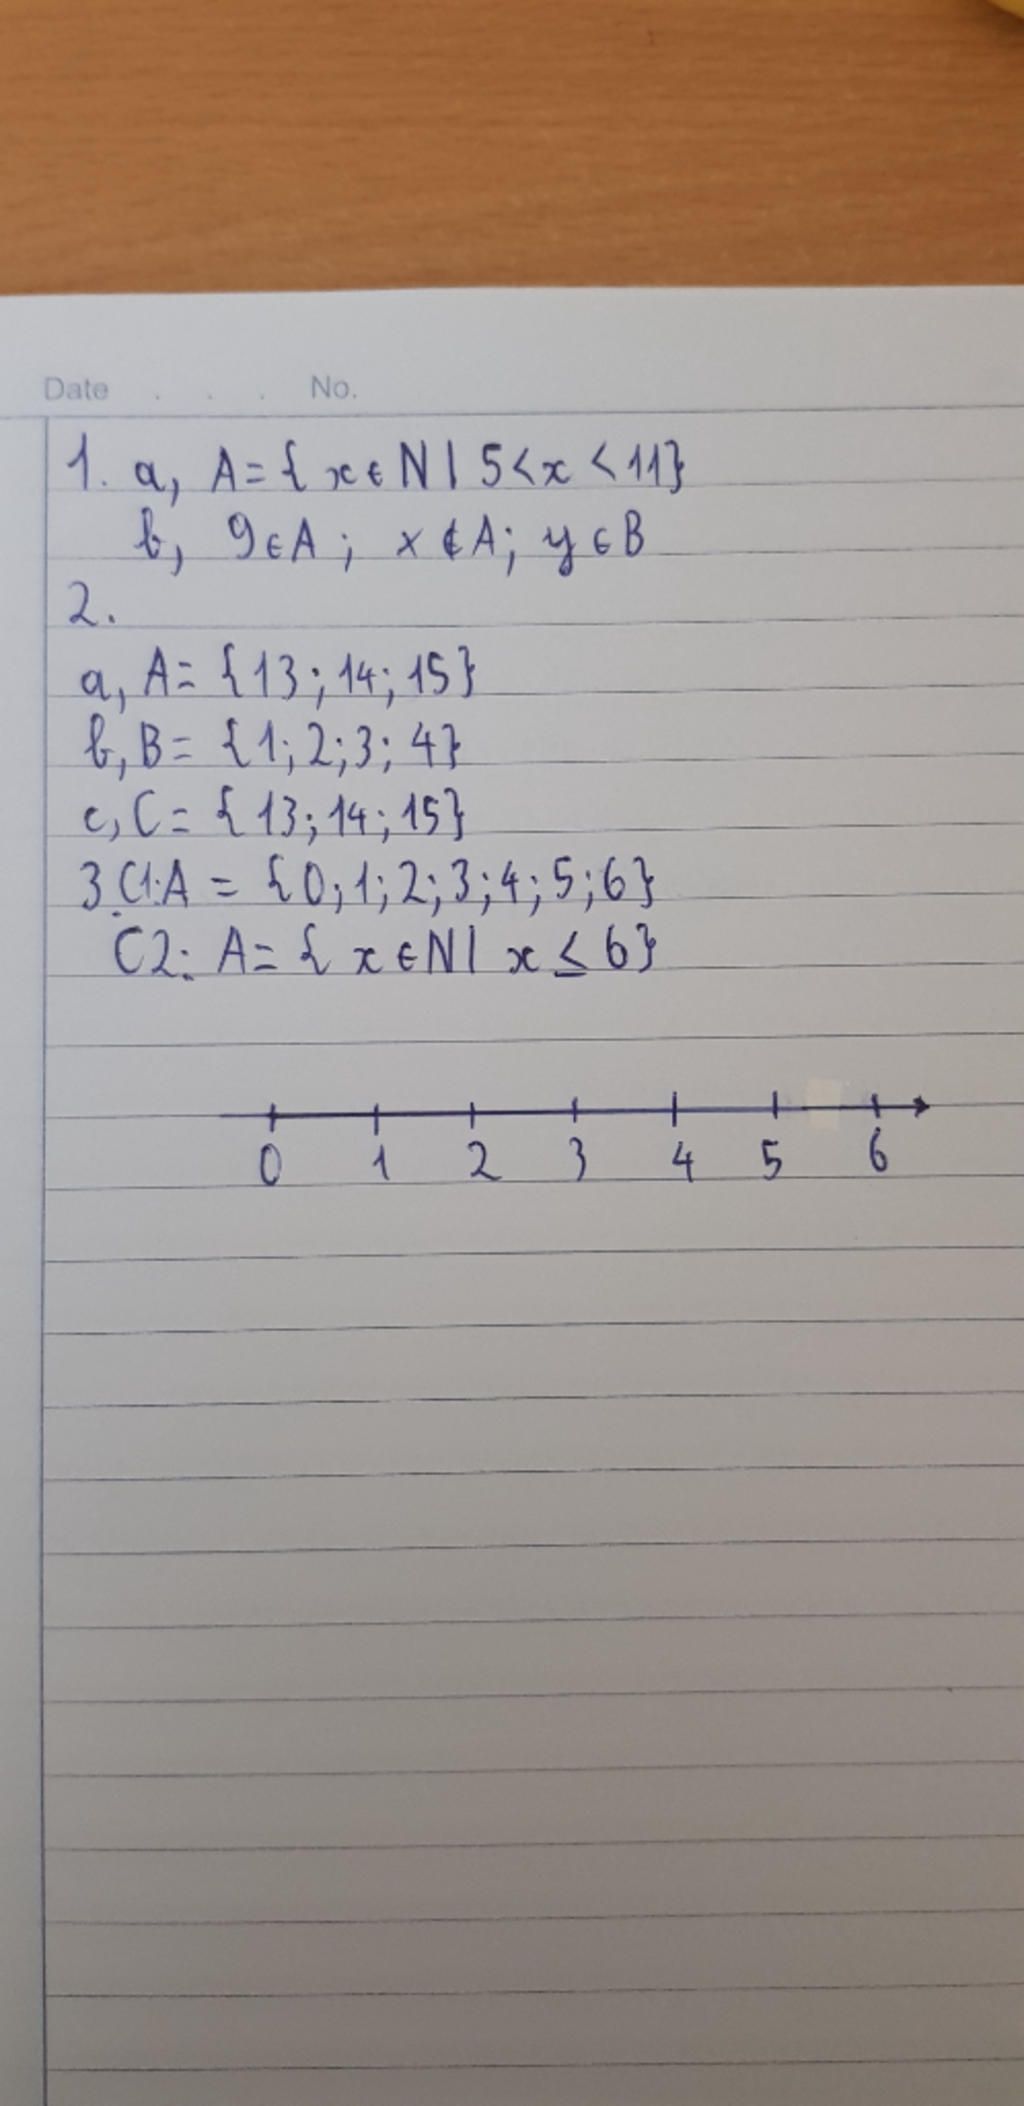 Date . . . No.
1. a, A = { x ∈ N | 5 < x < 11}
b, 9 ∈ A ; x ∉ A; y ∈ B
2.
a, A = {13; 14; 15}
b, B = {1; 2; 3; 4}
c, C = {13; 14; 15}
3. C1: A = {0; 1; 2; 3; 4; 5; 6}
C2: A = { x ∈ N | x ≤ 6}
0 1 2 3 4 5 6